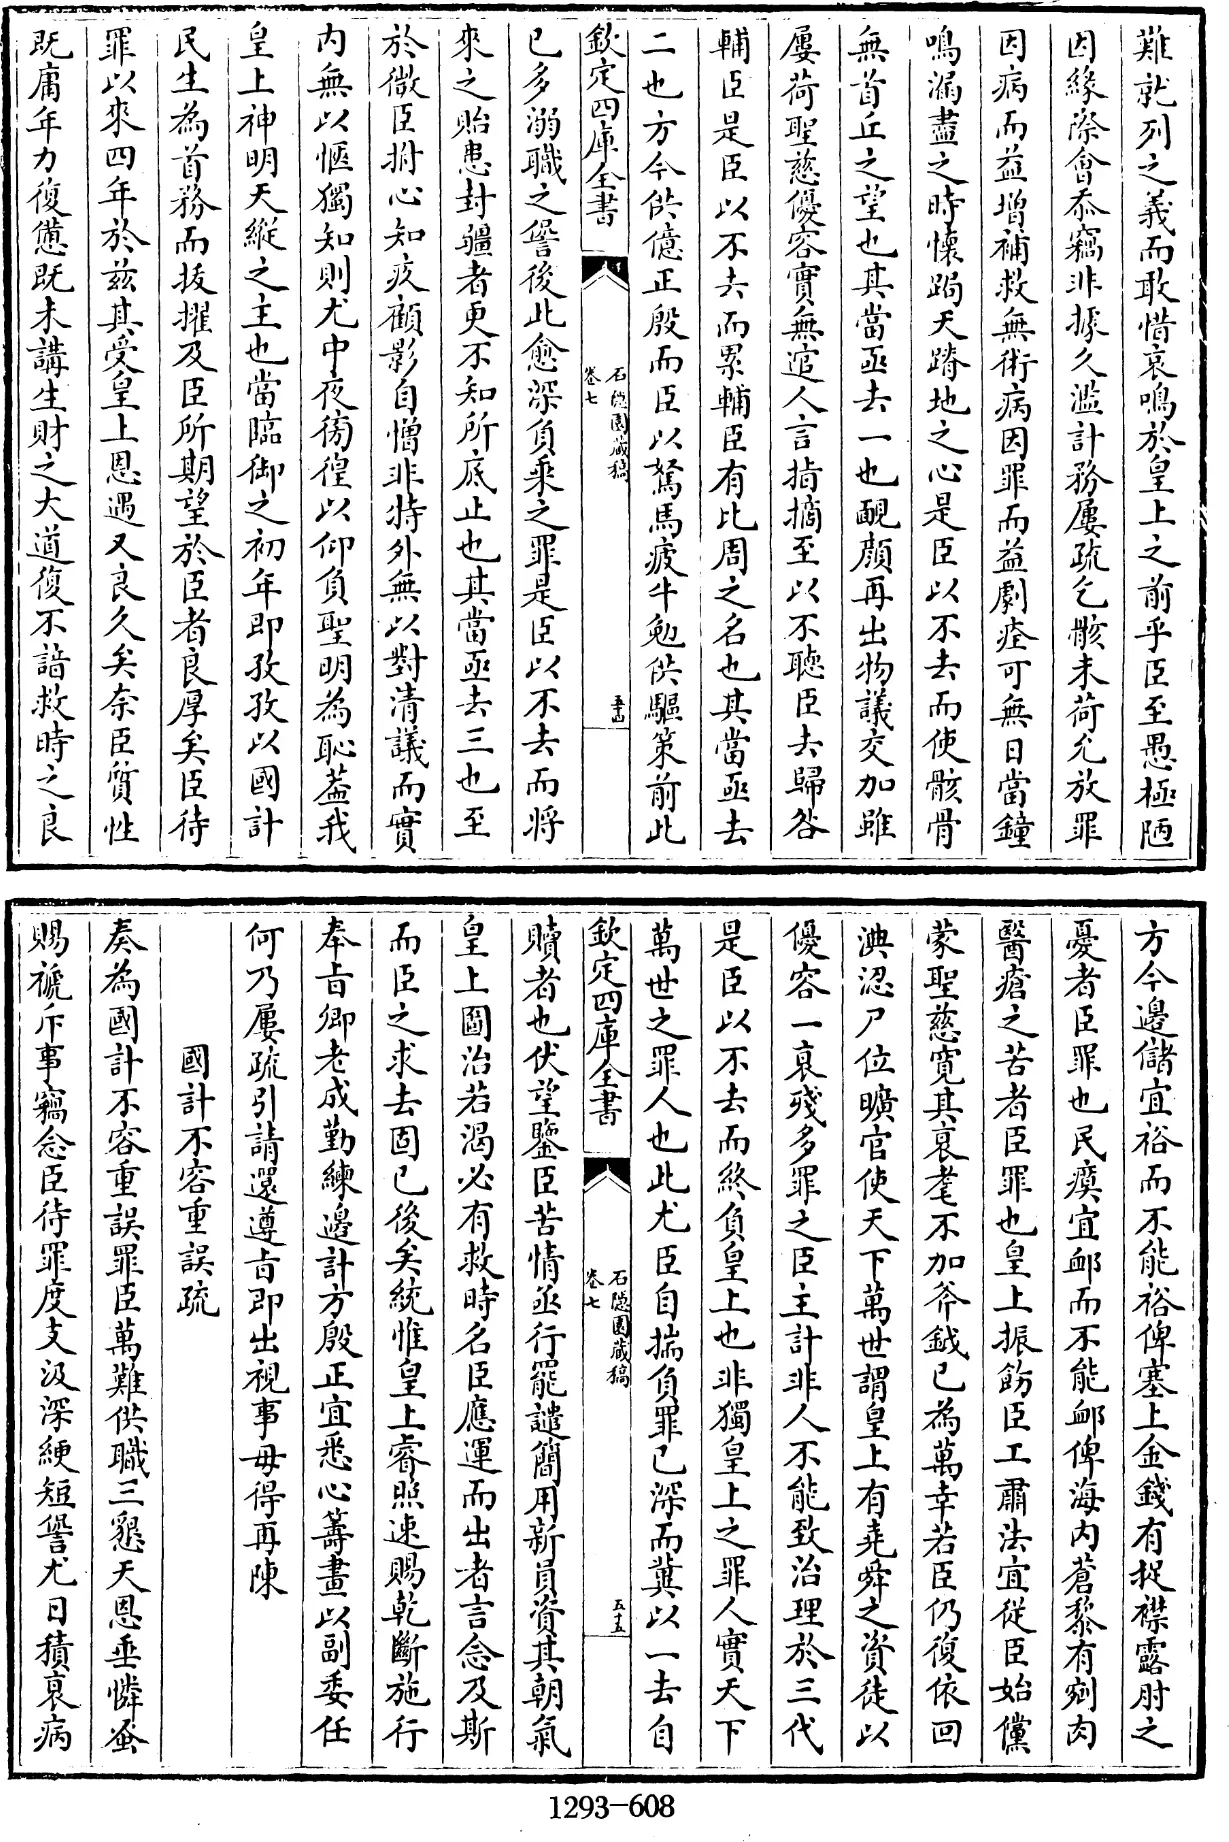 難就列之義而敢惜哀鳴於皇上之前乎臣至愚極陋
因緣際會忝竊非據久濫計務屢疏乞骸未荷允放罪
因病而益增補救無術病因罪而益劇痊可無日當鐘
鳴漏盡之時懷跼天蹐地之心是臣以不去而使骸骨
無首丘之望也其當亟去一也靦顏再出物議交加雖
屢荷聖慈優容實無逭人言指摘至以不聽臣去歸咎
輔臣是臣以不去而累輔臣有比周之名也其當亟去
二也方今供億正殷而臣以駑馬疲牛勉供驅策前此
欽定四庫全書
石隱園藏稿
卷七
五十四
已多溺職之詧後此愈深負乘之罪是臣以不去而將
來之貽患封疆者更不知所底止也其當亟去三也至
於微臣捫心知疚顧影自憎非特外無以對清議而實
內無以愜獨知則尤中夜徬徨以仰負聖明為恥蓋我
皇上神明天縱之主也當臨御之初年即孜孜以國計
民生為首務而拔擢及臣所期望於臣者良厚矣臣待
罪以來四年於兹其受皇上恩遇又良久矣奈臣質性
既庸年力復憊既未講生財之大道復不諳救時之良
方今邊儲宜裕而不能裕俾塞上金錢有捉襟露肘之
憂者臣罪也民瘼宜䘏而不能䘏俾海內蒼黎有剜肉
醫瘡之苦者臣罪也皇上振飭臣工肅法宜從臣始儻
蒙聖慈寬其衰耄不加斧鉞已為萬幸若臣仍復依回
淟涊尸位曠官使天下萬世謂皇上有堯舜之資徒以
優容一衰殘多罪之臣主計非人不能致治理於三代
是臣以不去而終負皇上也非獨皇上之罪人實天下
萬世之罪人也此尤臣自揣負罪已深而冀以一去自
欽定四庫全書
石隱園藏稿
卷七
五十五
贖者也伏望鑒臣苦情亟行罷譴簡用新員資其朝氣
皇上圖治若渴必有救時名臣應運而出者言念及斯
而臣之求去固已後矣統惟皇上睿照速賜乾斷施行
奉旨卿老成勤練邊計方殷正宜悉心籌畫以副委任
何乃屢疏引請還遵旨即出視事毋得再陳
國計不容重誤疏
奏為國計不容重誤罪臣萬難供職三懇天恩垂憐蚤
賜褫斥事竊念臣待罪度支汲深綆短詧尤日積衰病